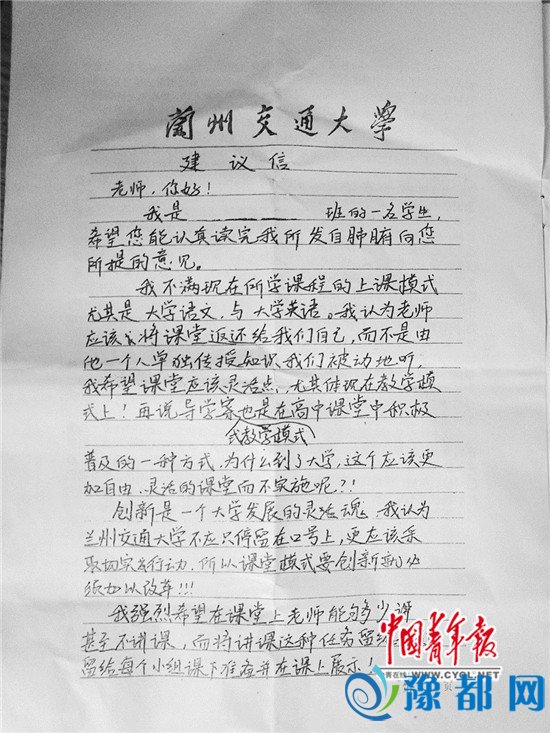 蘭州交通大學
建议信
老师，你好！
我是 班的一名学生，
希望您能认真读完我所发自肺腑向您
所提的意见。
我不满现在所学课程的上课模式
尤其是大学语文，与大学英语。我认为老师
应该将课堂返还给我们自己，而不是由
他一个人单独传授知识我们被动地听，
我希望课堂应该灵活点，尤其体现在教学模
式上！再说导学案也是在高中课堂中积极
式教学模式
普及的一种方式，为什么到了大学，这个应该更
加自由、灵活的课堂而不实施呢？！
创新是一个大学发展的灵活魂，我认为
兰州交通大学不应只停留在口号上，更应该采
取切实行动，所以课堂模式要创新
加以改革！！！
我强烈希望在课堂上老师能够多少讲
甚至不讲课，而将讲课这种任务留给
留给每个小组课下准备并在课上展示！
中国青年报
青在线 WWW.CYOL.NET
页
豫都网